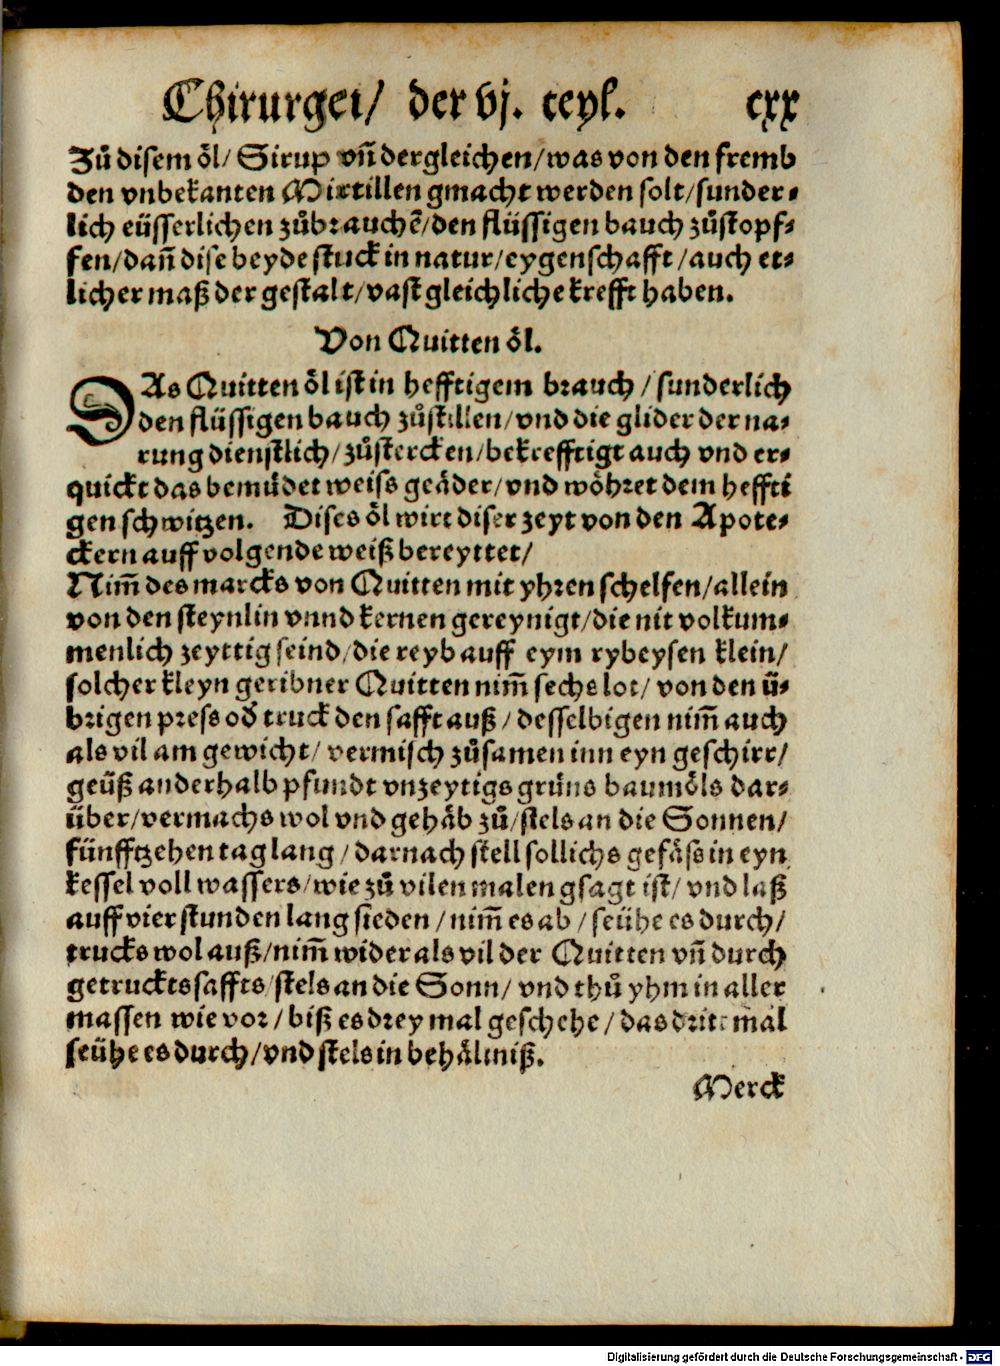 Chirurgei/ der vj. teyl. cxx
Zů disem öl/ Sirup vñ dergleichen/ was von den fremb
den vnbekanten Mirtillen gmacht werden solt/ sunder-
lich eüsserlichen zůbrauchẽ/ den flüssigen bauch zůstopf-
fen/ dañ dise beyde stuck in natur/ eygenschafft/ auch et-
licher maß der gestalt/ vast gleichliche krefft haben.
Von Quitten öl.
DAs Quitten öl ist in hefftigem brauch/ sunderlich
den flüssigen bauch zůstillen/ vnd die glider der na-
rung dienstlich/ zůstercken/ bekrefftigt auch vnd er-
quickt das bemüdet weiss geäder/ vnd wöhret dem heffti
gen schwitzen. Dises öl wirt diser zeyt von den Apote-
ckern auff volgende weiß bereyttet/
Nim̃ des marcks von Quitten mit yhren schelfen/ allein
von den steynlin vnnd kernen gereynigt/ die nit volkum-
menlich zeyttig seind/ die reyb auff eym rybeysen klein/
solcher kleyn geribner Quitten nim̃ sechs lot/ von den ü-
brigen press od̕ truck den safft auß/ desselbigen nim̃ auch
als vil am gewicht/ vermisch zůsamen inn eyn geschirr/
geüß anderhalb pfundt vnzeytigs grüns baumöls dar-
über/ vermachs wol vnd gehäb zů/ stels an die Sonnen/
fünfftzehen tag lang/ darnach stell sollichs gefäss in eyn
kessel voll wassers/ wie zů vilen malen gsagt ist/ vnd laß
auff vier stunden lang sieden/ nim̃ es ab/ seühe es durch/
trucks wol auß/ nim̃ wider als vil der Quitten vñ durch
getruckts saffts/ stels an die Sonn/ vnd thů yhm in aller
massen wie vor/ biß es drey mal geschehe/ das drit mal
seühe es durch/ vnd stels in behältniß.
Merck
Digitalisierung gefördert durch die Deutsche Forschungsgemeinschaft - DFG